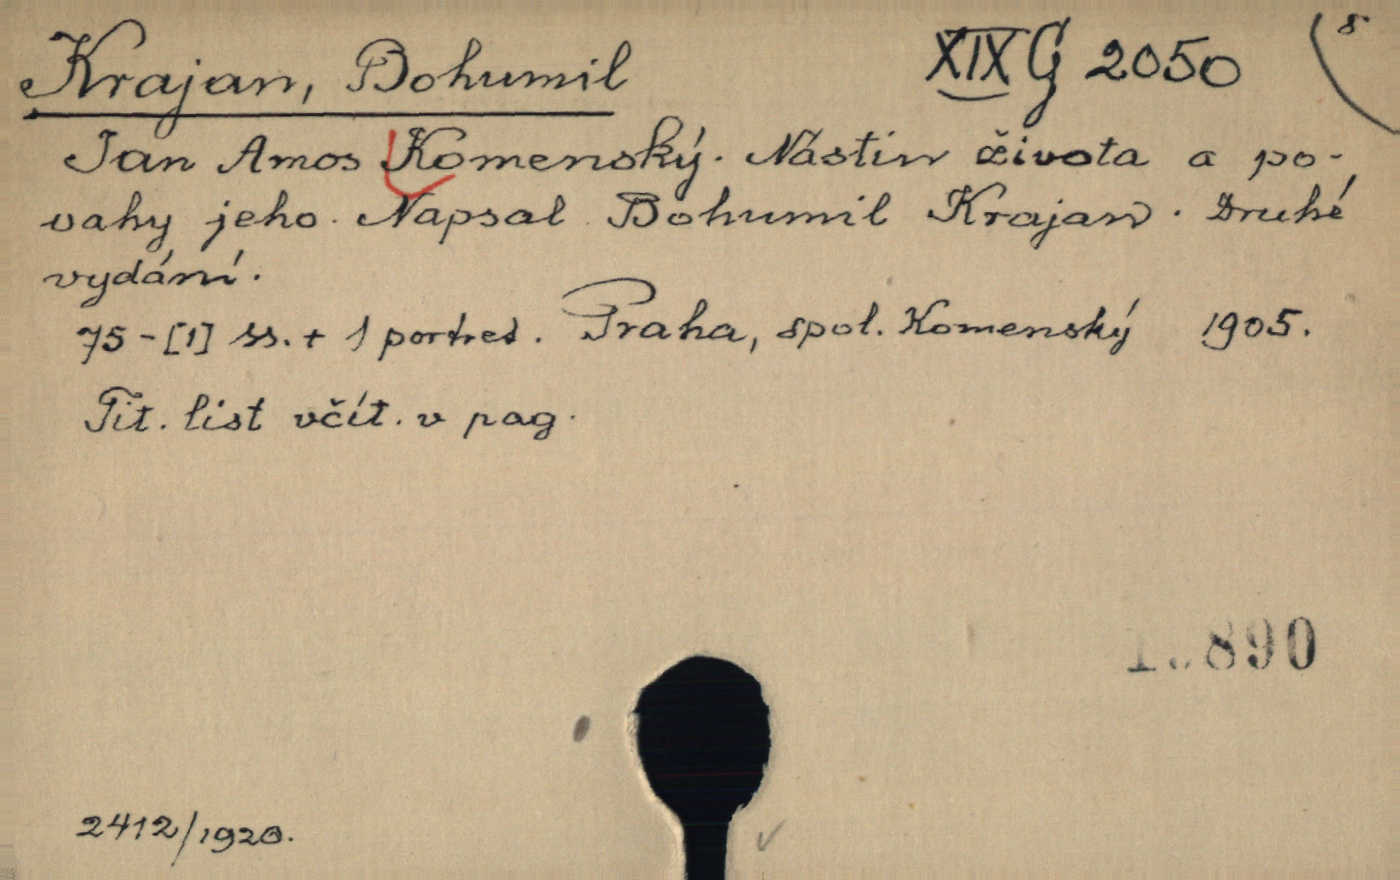 Krajan, Bohumil
XIX G 2050
8
Jan Amos Komenský. Nástin života a po-
vahy jeho. Napsal Bohumil Krajan. Druhé
vydání.
75-[1] ss. + 1 portret. Praha, spol. Komenský 1905.
Tit. list včít. v pag.
890
2412/1920.